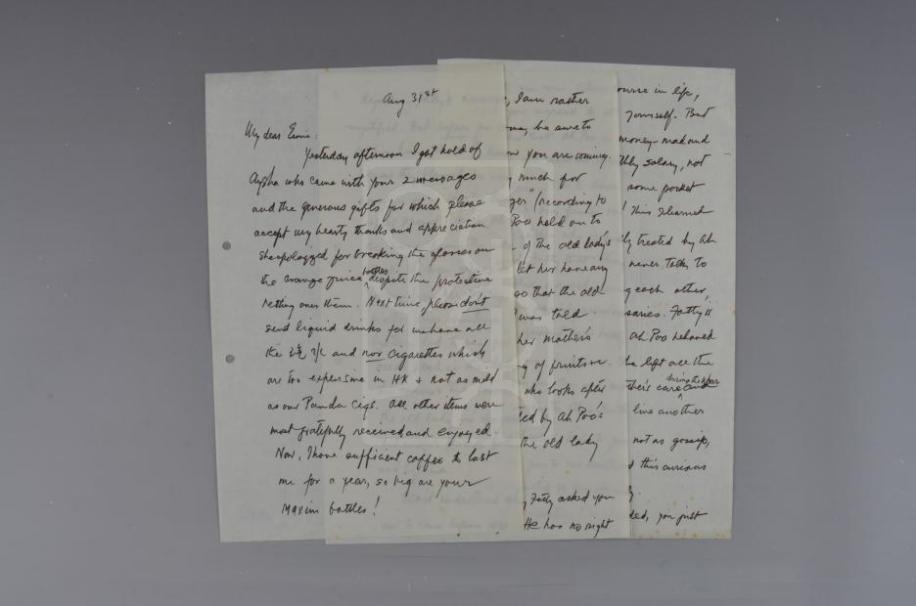 Aug 31st
My dear
Yesterday afternoon I got hold of
Aysha who came with your 2 messages
and the generous gifts for which please
accept my hearty thanks and appreciation
She apologized for breaking the glasses on
the orange juice bottles despite the protective
netting over them. Next time please don't
send liquid drinks for we have all
the and nor cigarettes which
are too expensive in HK & not as mild
as our Panda Cigs. All other items were
most gratefully received and enjoyed.
Now, I have sufficient coffee to last
me for a year, so big are your
Maxim bottles!
, I am rather
be sure to
you are coming.
much for
(according to
Poo held on to
of the old lady's
let her have any
so that the old
was told
her mother's
of fruits or
who looks after
by Ah Poo's
the old lady
, Fatty asked you
He has no right
course in life,
yourself. But
money-mad and
salary, not
some pocket
! This I learned
treated by Ah
never talk to
each other,
Fatty is
Ah Poo behaved
he left all the
care and
during the
live another
not as gossip,
this anxious
, you just